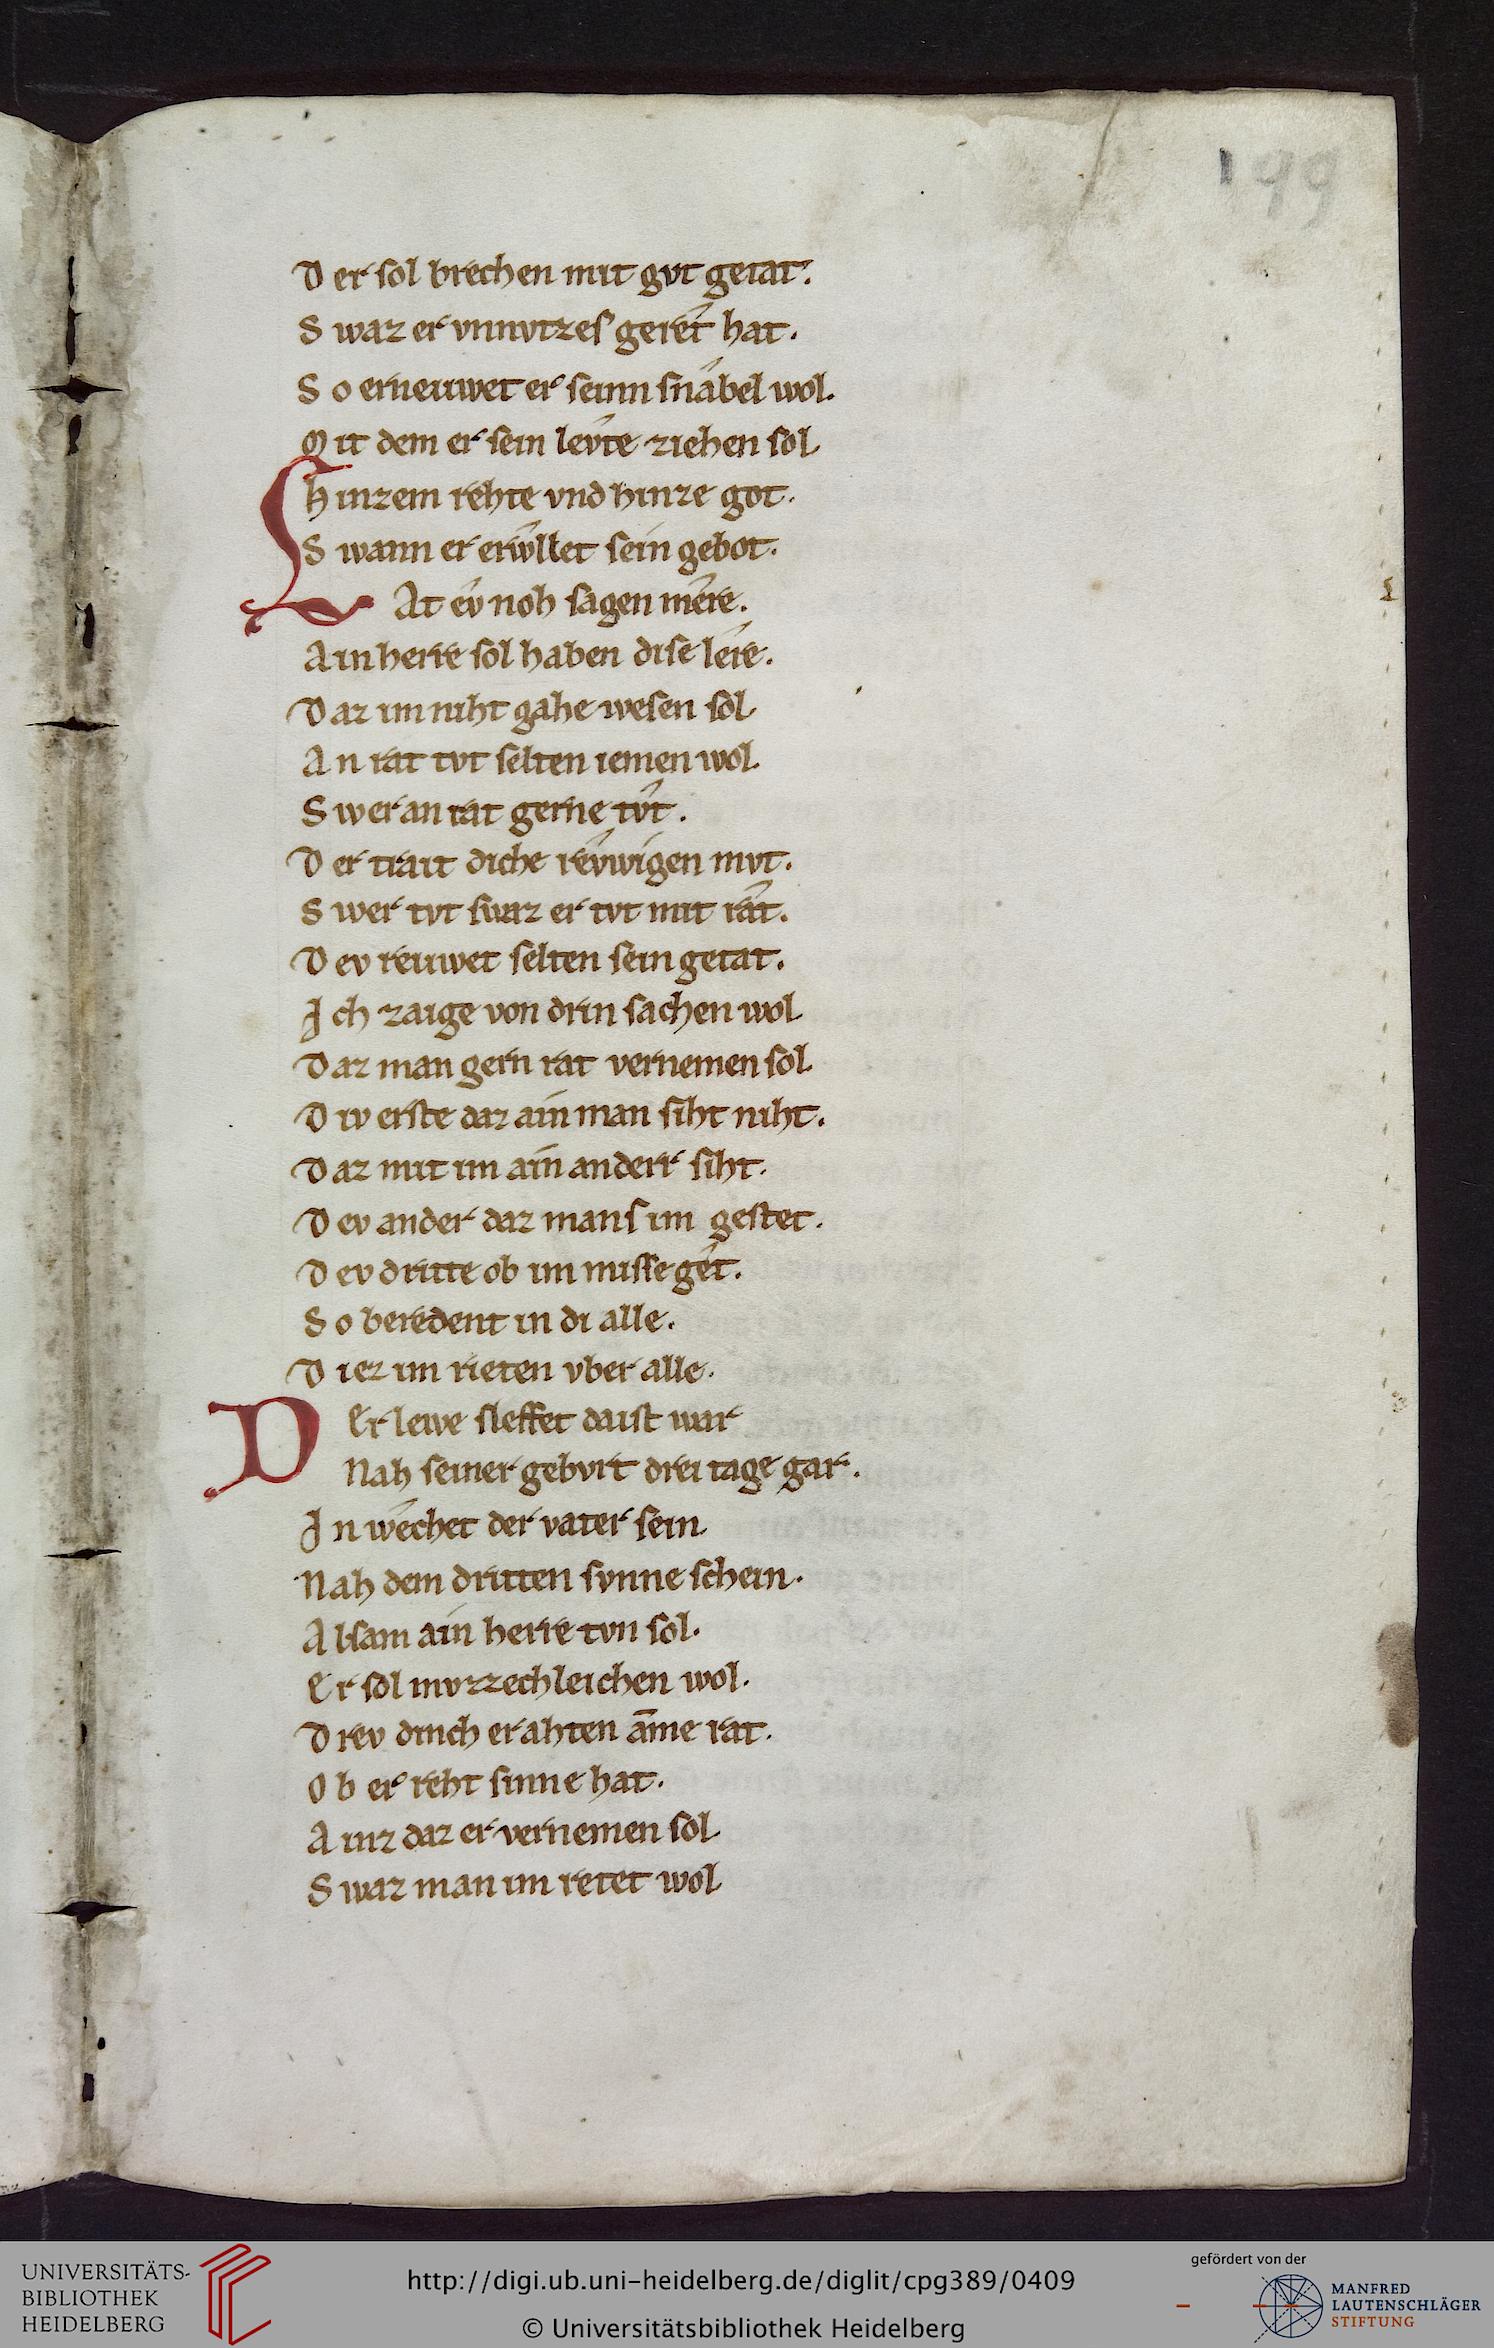 199
D er sol brechen mit gvt getat.
S waz er vnnvtzes geret hat.
S o erneuwet er seinn snabel wol.
M it dem er sein levte ziehen sol
h inzem rehte vnd hinze got.
S wann er ervvllet sein gebot.
L At ev noh sagen mere.
A in herre sol haben dise lere.
D az im niht gahe wesen sol
A n rat tvt selten iemen wol.
S wer an rat gerne tvt.
D er trait diche revwigen mvt.
S wer tvt swaz er tvt mit rat.
D ev reuwet selten sein getat.
I ch zaige von drin sachen wol
D az man gern rat vernemen sol
D iv erste daz ain man siht niht.
D az mit im ain anderr siht.
D ev ander daz mans im gestet.
D ev dritte ob im misseget.
S o beredent in di alle.
D iez im rieten vber alle.
D Er lewe sleffet daist war
Nah seiner gebvrt drei tage gar.
I n wechet der vater sein
Nah dem dritten svnne schein.
A lsam ain herre tvn sol.
E r sol mvzzechleichen wol.
D rev dinch er ahten āme rat.
O b er reht sinne hat.
A inz daz er vernemen sol
S waz man im retet wol
UNIVERSITÄTS-
BIBLIOTHEK
HEIDELBERG
http://digi.ub.uni-heidelberg.de/diglit/cpg389/0409
© Universitätsbibliothek Heidelberg
gefördert von der
MANFRED
LAUTENSCHLÄGER
STIFTUNG